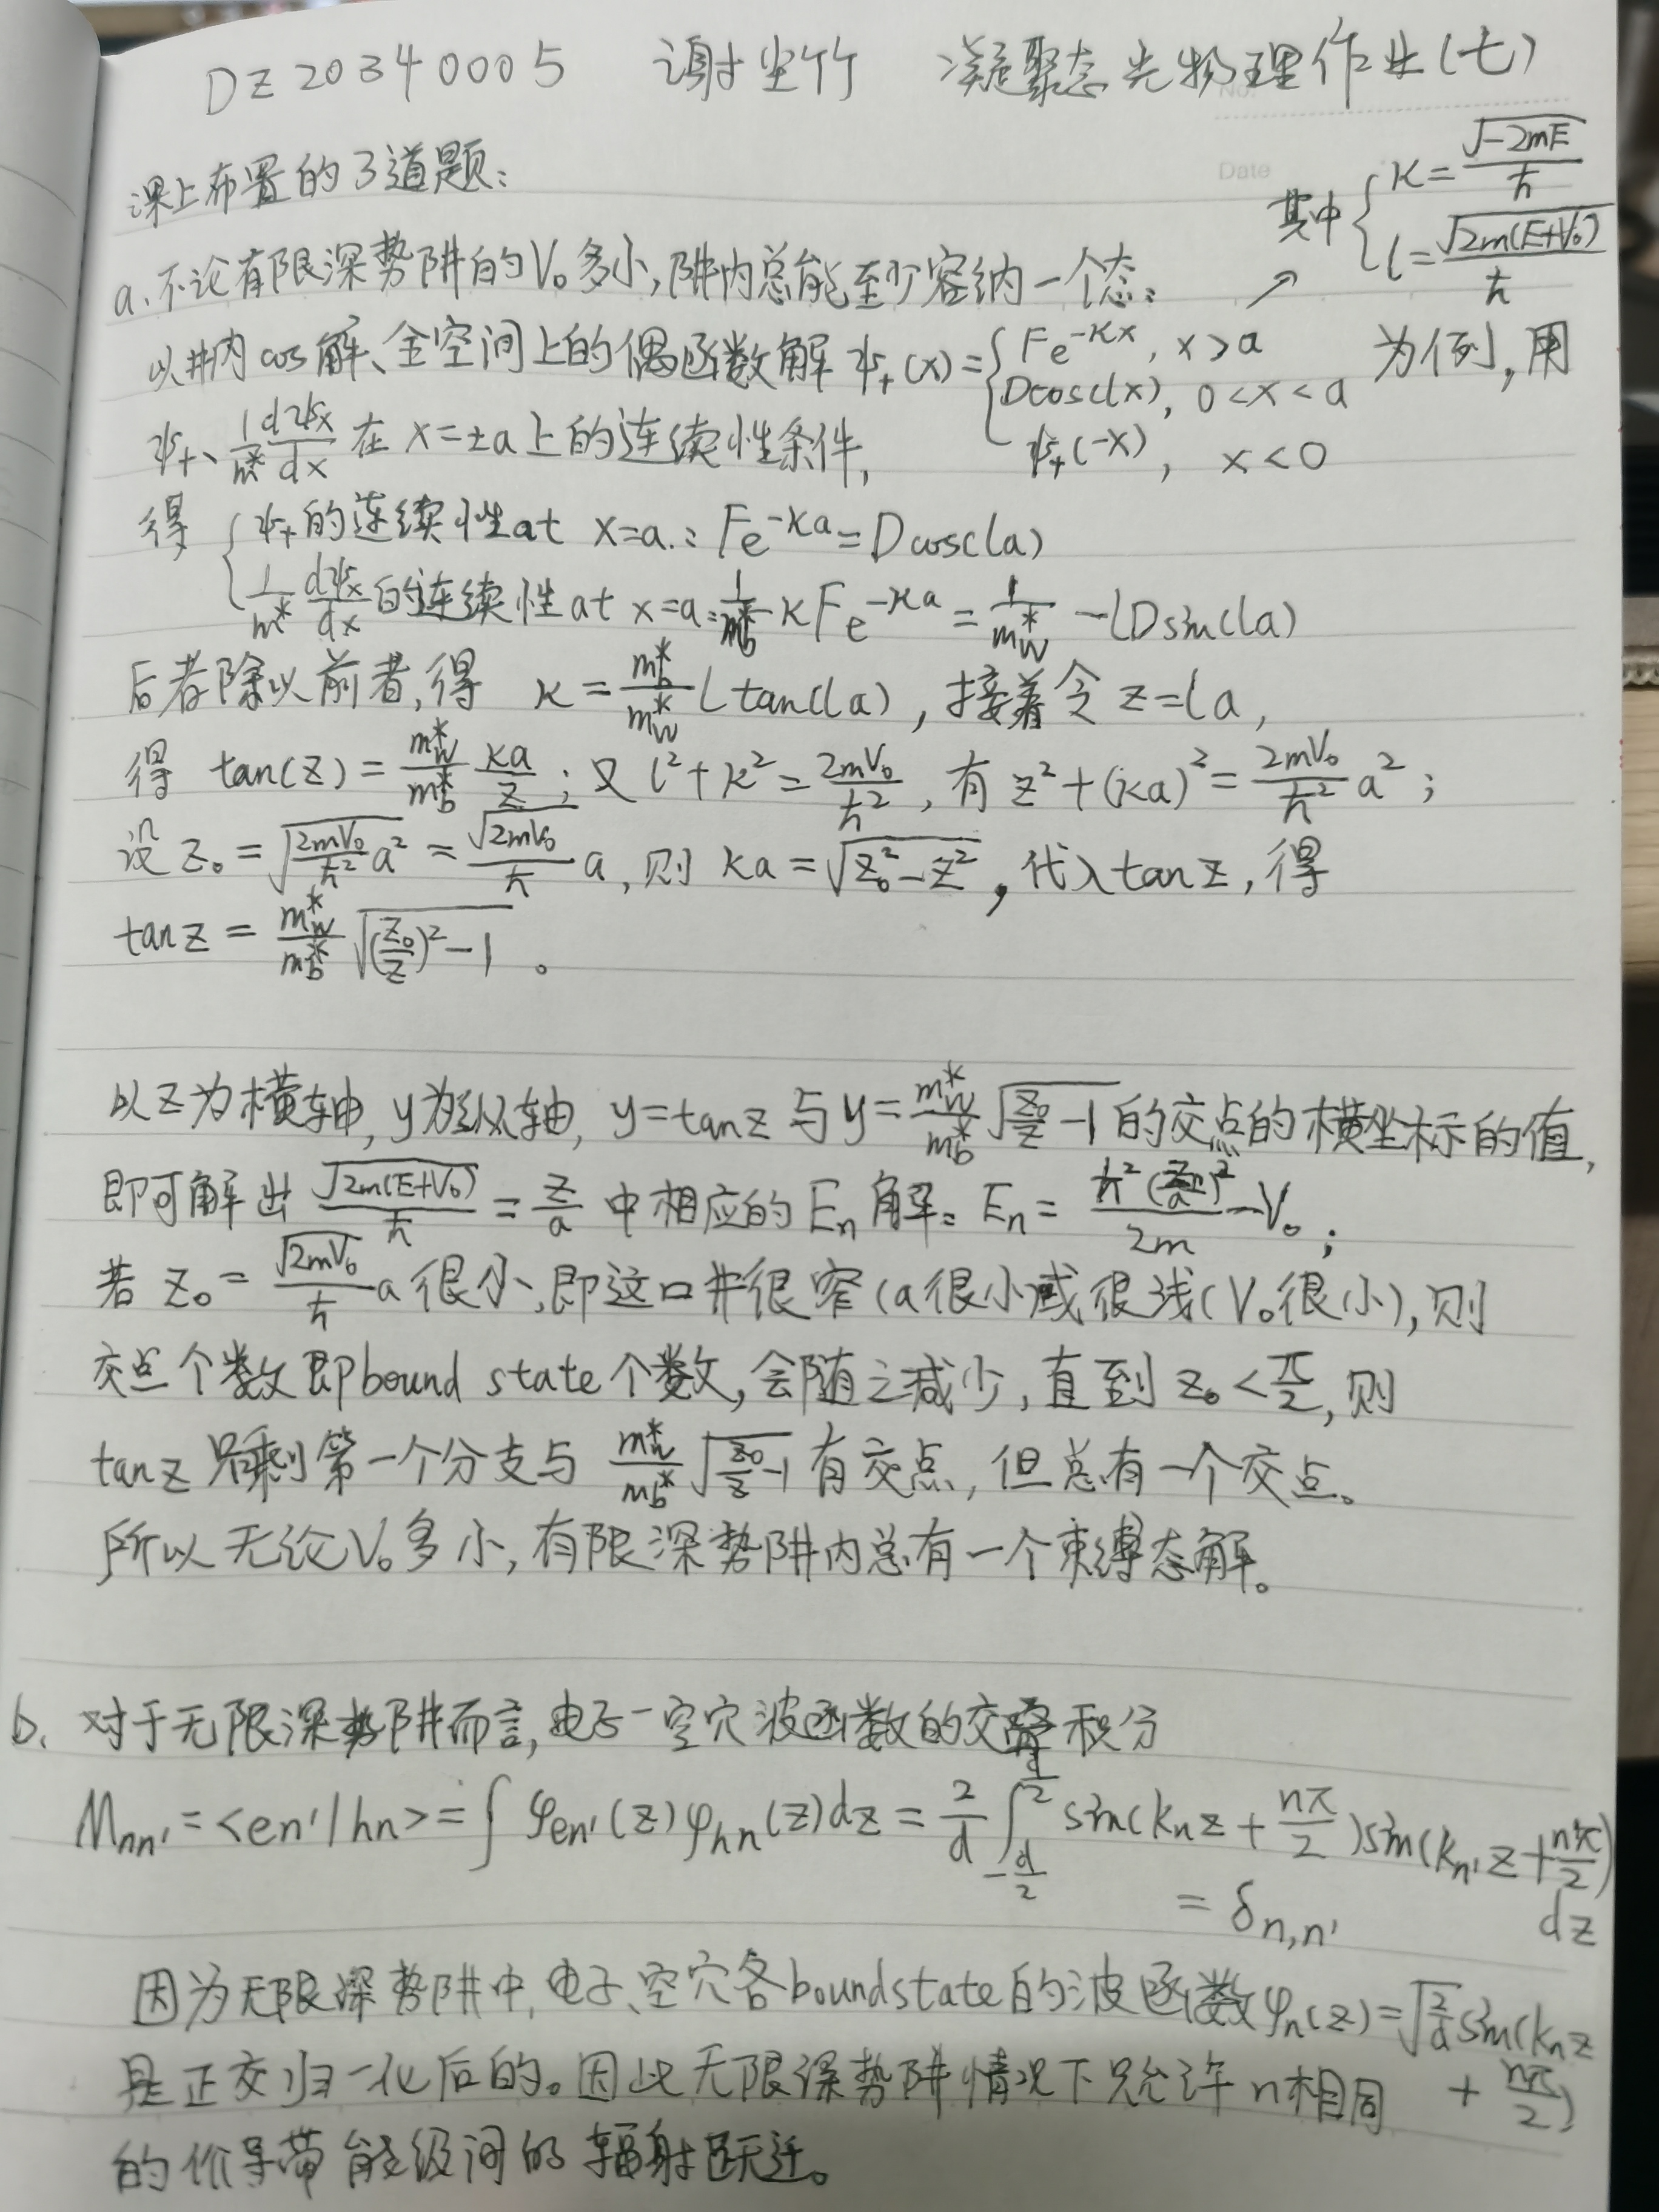 DZ20340005 谢尘竹 凝聚态光物理作业(七)
No.
Date
课上布置的3道题:
其中 { K = √(-2mE)/ħ
l = √(2m(E+V₀))/ħ
a. 不论有限深势阱的V₀多小,阱内总能至少容纳一个态:
以井内cos解、全空间上的偶函数解 ψ₊(x) = { Fe^(-Kx), x>a 为例,用
Dcos(lx), 0<x<a
ψ₊(-x), x<0
ψ₊、1/m* dψx/dx 在 x=±a上的连续性条件,
得 { ψ₊的连续性at x=a: Fe^(-Ka) = Dcos(la)
1/m* dψx/dx 的连续性at x=a: 1/m_b* KFe^(-Ka) = 1/m_w* -lDsin(la)
后者除以前者,得 K = m_b*/m_w* l tan(la), 接着令 z=la,
得 tan(z) = m_w*/m_b* Ka/z; 又 l²+K² = 2mV₀/ħ², 有 z²+(Ka)² = 2mV₀/ħ² a²;
设 z₀ = √(2mV₀/ħ² a²) = √(2mV₀)/ħ a, 则 Ka = √(z₀²-z²), 代入tanz,得
tanz = m_w*/m_b* √((z₀/z)²-1)。
以z为横轴,y为纵轴, y=tanz 与 y= m_w*/m_b* √(z₀/z -1) 的交点的横坐标的值,
即可解出 √(2m(E+V₀))/ħ = z/a 中相应的Eₙ解: Eₙ = ħ²(zₙ/a)²/2m - V₀;
若 z₀ = √(2mV₀)/ħ a 很小,即这口井很窄(a很小)或很浅(V₀很小),则
交点个数即bound state个数,会随之减少,直到 z₀<π/2, 则
tanz 只剩第一个分支与 m_w*/m_b* √(z₀/z -1) 有交点,但总有一个交点。
所以无论V₀多小,有限深势阱内总有一个束缚态解。
b. 对于无限深势阱而言,电子-空穴波函数的交叠积分
Mₙₙ' = <en'|hn> = ∫ φₑₙ'(z)φₕₙ(z)dz = 2/d ∫_(-d/2)^(d/2) sin(kₙz + nπ/2)sin(kₙ'z + n'π/2)dz
= δₙ,ₙ'
因为无限深势阱中,电子、空穴各boundstate的波函数φₙ(z) = √(2/d) sin(kₙz + nπ/2)
是正交归一化后的。因此无限深势阱情况下只允许n相同
的价导带能级间的辐射跃迁。